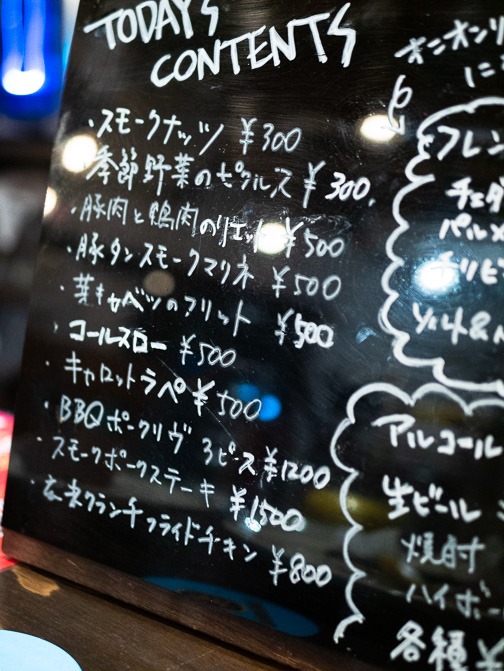 TODAY'S
CONTENTS
・スモークナッツ ¥300
季節野菜のピクルス ¥300.
・豚肉と鴨肉のリエット ¥500
・豚タンスモークマリネ ¥500
・芽キャベツのフリット ¥500
・コールスロー ¥500
・キャロットラペ ¥500
・BBQポークリヴ 3ピース ¥1200
・スモークポークステーキ ¥1500
・玄米クランチフライドチキン ¥800
オニオンリ
にニ
フレン
チェダ
パルメ
チリビ
ソルト&
アルコール
生ビール
焼酎
ハイボ
各種